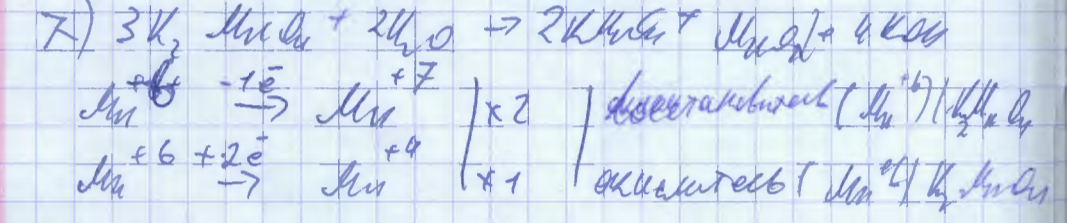 7) 3K₂MnO₄ + 2H₂O → 2KMnO₄ + MnO₂ + 4KOH
Mn⁺⁶ -1ē → Mn⁺⁷ | ×2 | восстановитель (Mn⁺⁶) (K₂MnO₄
Mn⁺⁶ +2ē → Mn⁺⁴ | ×1 окислитель (Mn⁺⁶) K₂MnO₄